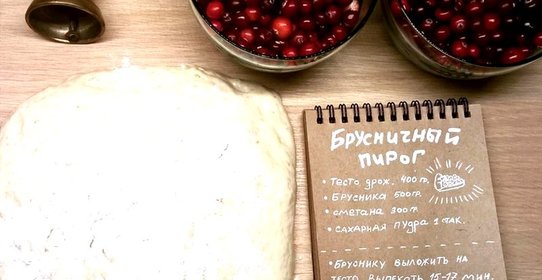 Брусничный
пирог
• Тесто дрож. 400 гр.
• Брусника 500гр.
• сметана 300гр.
• сахарная пудра 1 пак.
• Бруснику выложить на
тесто. Выпекать 15-17 мин.